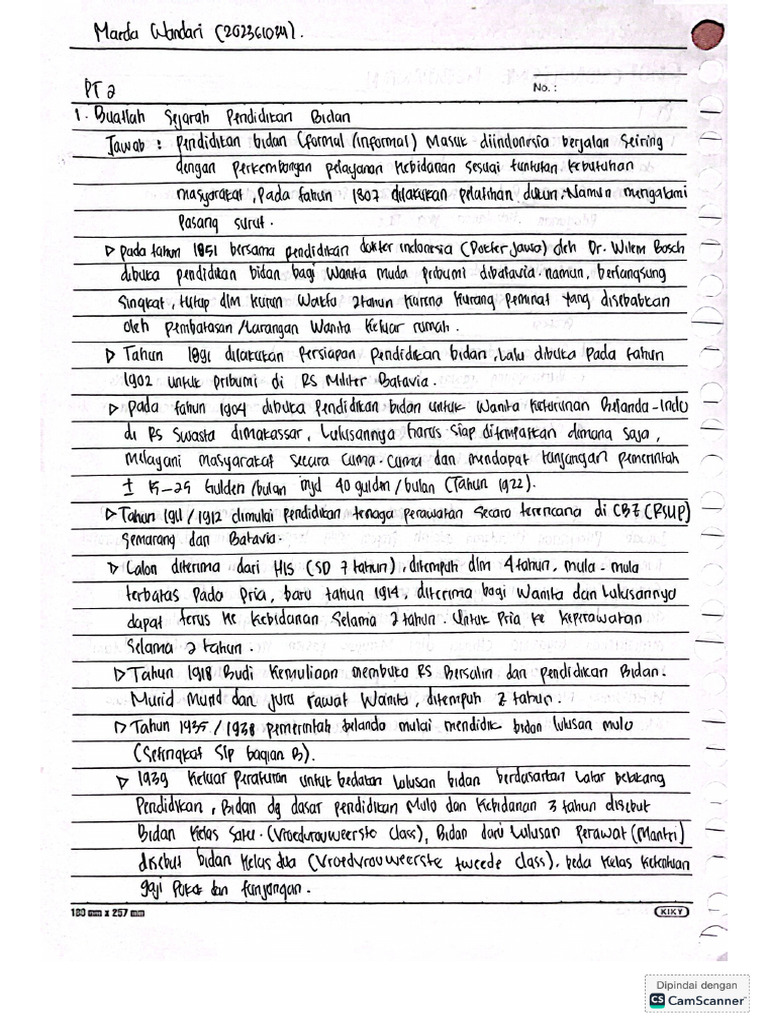 Marda Wandari (202361024).
No. :
PT 2
1. Buatlah Sejarah Pendidikan Bidan
Jawab : Pendidikan bidan (formal (informal) Masuk diindonesia berjalan seiring
dengan perkembangan pelayanan kebidanan sesuai tuntutan kebutuhan
masyarakat, Pada tahun 1807 dilakukan pelatihan dukun. Namun mengalami
Pasang surut.
▷ pada tahun 1851 bersama pendidikan dokter indonesia (Dokter Jawa) oleh Dr. Wilem Bosch
dibuka pendidikan bidan bagi Wanita muda pribumi dibatavia. namun, berlangsung
Singkat, tutup dlm kurun waktu 2 tahun karena kurang peminat yang disebabkan
oleh pembatasan /Larangan Wanita Keluar rumah.
▷ Tahun 1891 dilakukan Persiapan Pendidikan bidan, Lalu dibuka Pada tahun
1902 untuk pribumi di RS Militer Batavia.
▷ pada tahun 1904 dibuka Pendidikan bidan untuk Wanita keturunan Belanda-Indo
di Rs Swasta dimakassar, Lulusannya harus siap ditempatkan dimana saja,
Melayani masyarakat secara cuma-cuma dan mendapat tunjangan pemerintah
± 15-25 Gulden/bulan mjd 40 gulden/bulan (Tahun 1922).
▷ Tahun 1911/1912 dimulai pendidikan tenaga perawatan secara terencana di CBZ (RSUP)
Semarang dan Batavia.
▷ Calon diterima dari HIS (SD 7 tahun), ditempuh dlm 4 tahun, mula-mula
terbatas Pada Pria, baru tahun 1914, diterima bagi Wanita dan Lulusannya
dapat terus ke kebidanan Selama 2 tahun. Untuk Pria ke keperawatan
Selama 2 tahun.
▷ Tahun 1918 Budi Kemuliaan membuka RS Bersalin dan pendidikan Bidan.
Murid Murid dan juru rawat Wanita, ditempuh 2 tahun.
▷ Tahun 1935/1938 pemerintah belanda mulai mendidik bidan lulusan mulo
(Setingkat Slp bagian B).
▷ 1939 Keluar Peraturan untuk bedakan Lulusan bidan berdasarkan Latar belakang
Pendidikan, Bidan dg dasar pendidikan Mulo dan Kebidanan 3 tahun disebut
Bidan Kelas Satu. (Vroedvrouweerste class), Bidan dari Lulusan Perawat (Mantri)
disebut bidan Kelas dua (Vroedvrouweerste tweede class). beda Kelas Ketentuan
gaji Pokok dan tunjangan.
180 mm x 257 mm
KIKY
Dipindai dengan
CS CamScanner